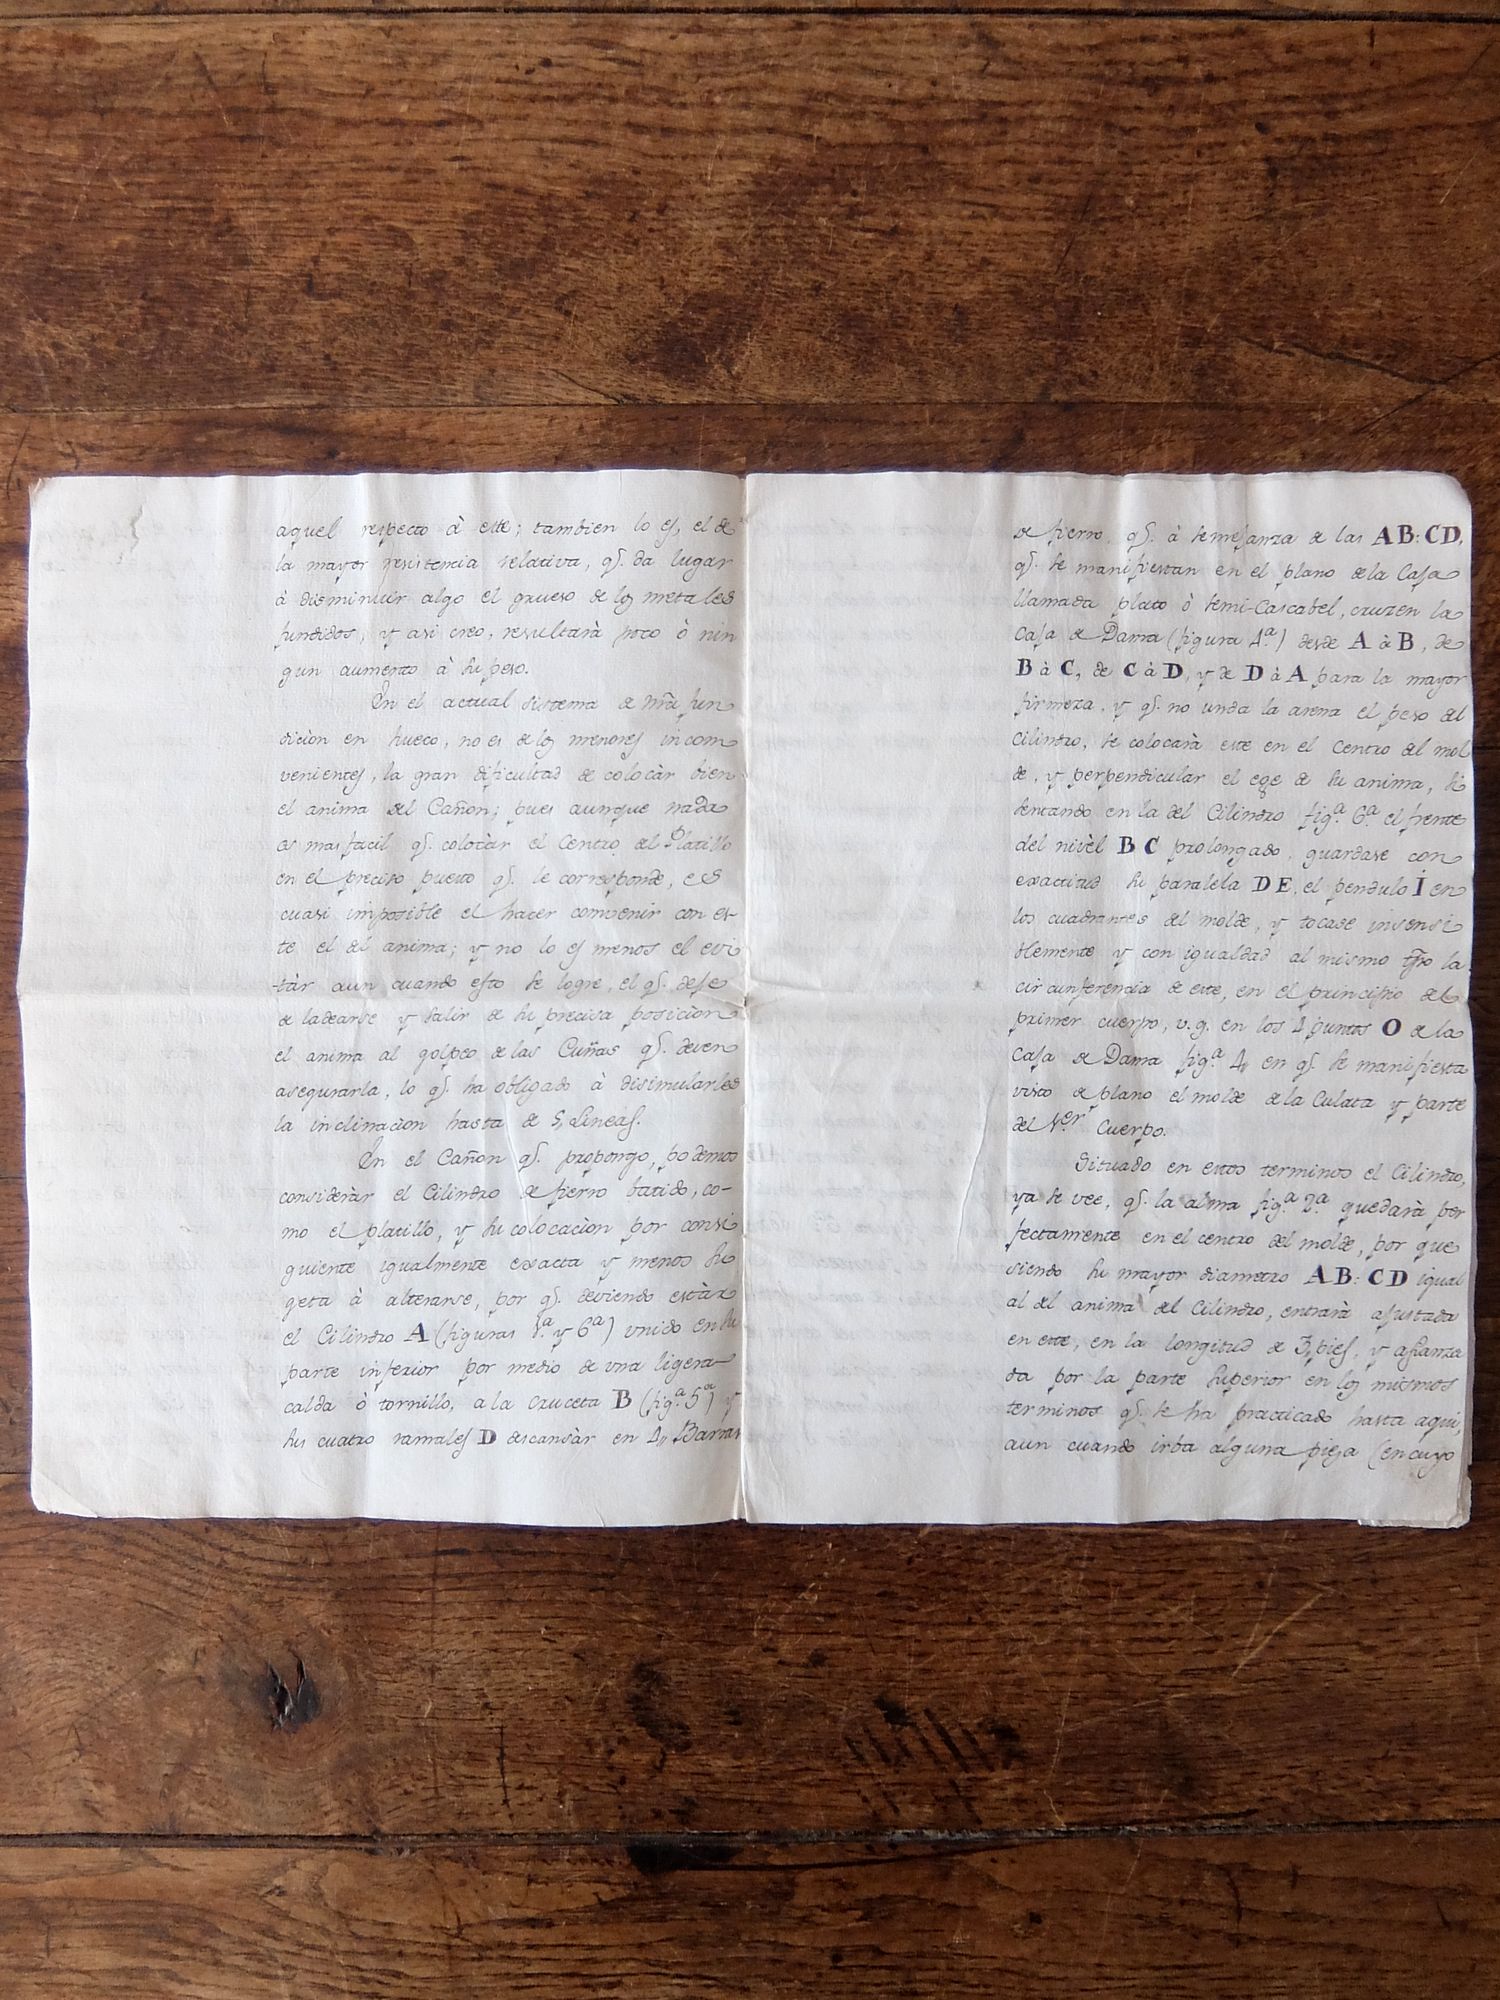 aquel respecto à este; tambien lo es, el de
la mayor resistencia relativa, qe. da lugar
à disminuir algo el grueso de los metales
fundidos, y asi creo, resultarà poco ò nin
gun aumento à su peso.
En el actual sistema de nra fun
dicion en hueco, no es de los menores incom
venientes, la gran dificultad de colocàr bien
el anima del Cañon; pues aunque nada
es mas facil qe. colocàr el Centro del Platillo
en el preciso puesto qe. le corresponde, es
cuasi imposible el hacer convenir con es-
te el del anima; y no lo es menos el evi
tàr aun cuando esto se logre, el qe. deje
de ladearse y salir de su precisa posicion
el anima al golpeo de las Cuñas qe. deven
asegurarla, lo qe. ha obligado à disimularles
la inclinaciòn hasta de 5, Lineas.
En el Cañon qe. propongo, podemos
consideràr el Cilindro de fierro batido, co-
mo el platillo, y su colocaciòn por consi
guiente igualmente exacta y menos su
geta à alterarse, por qe. deviendo estàr
el Cilindro A (figuras 1.ª y 6ª) unido en su
parte inferior por medio de vna ligera
calda ò tornillo, a la cruceta B (fig.ª 5ª) y
sus cuatro ramales D descansàr en 4,, Barras
de fierro, qe. à semejanza de las AB: CD,
qe. se manifiestan en el plano de la Caja
llamada plato ò semi-Cascabel, cruzen la
Caja de Dama (figura 4ª) desde A à B, de
B à C, de C à D, y de D à A para la mayor
firmeza, y qe. no unda la arena el peso del
Cilindro, se colocarà este en el Centro del mol
de, y perpendicular el ege de su anima, si
sentando en la del Cilindro fig.ª 6.ª el frente
del nivèl B C prolongado, guardase con
exactitud su paralela D E, el pendulo I en
los cuadrantes del molde, y tocase insensi
blemente y con igualdad al mismo tpo la
circunferencia de este, en el principio del
primer cuerpo, v.g. en los 4 puntos O de la
Caja de Dama fig.ª 4,, en qe. se manifiesta
visto de plano el molde de la Culata y parte
del 1.er Cuerpo.
Situado en estos terminos el Cilindro,
ya se vee, qe. la alma fig.ª 2.ª quedarà per
fectamente en el centro del molde, por que
siendo su mayor diametro AB: CD igual
al del anima del Cilindro, entrarà ajustada
en este, en la longitud de 3, pies, y afianza
da por la parte superior en los mismos
terminos qe. se ha practicado hasta aqui,
aun cuando irba alguna pieza (en cuyo